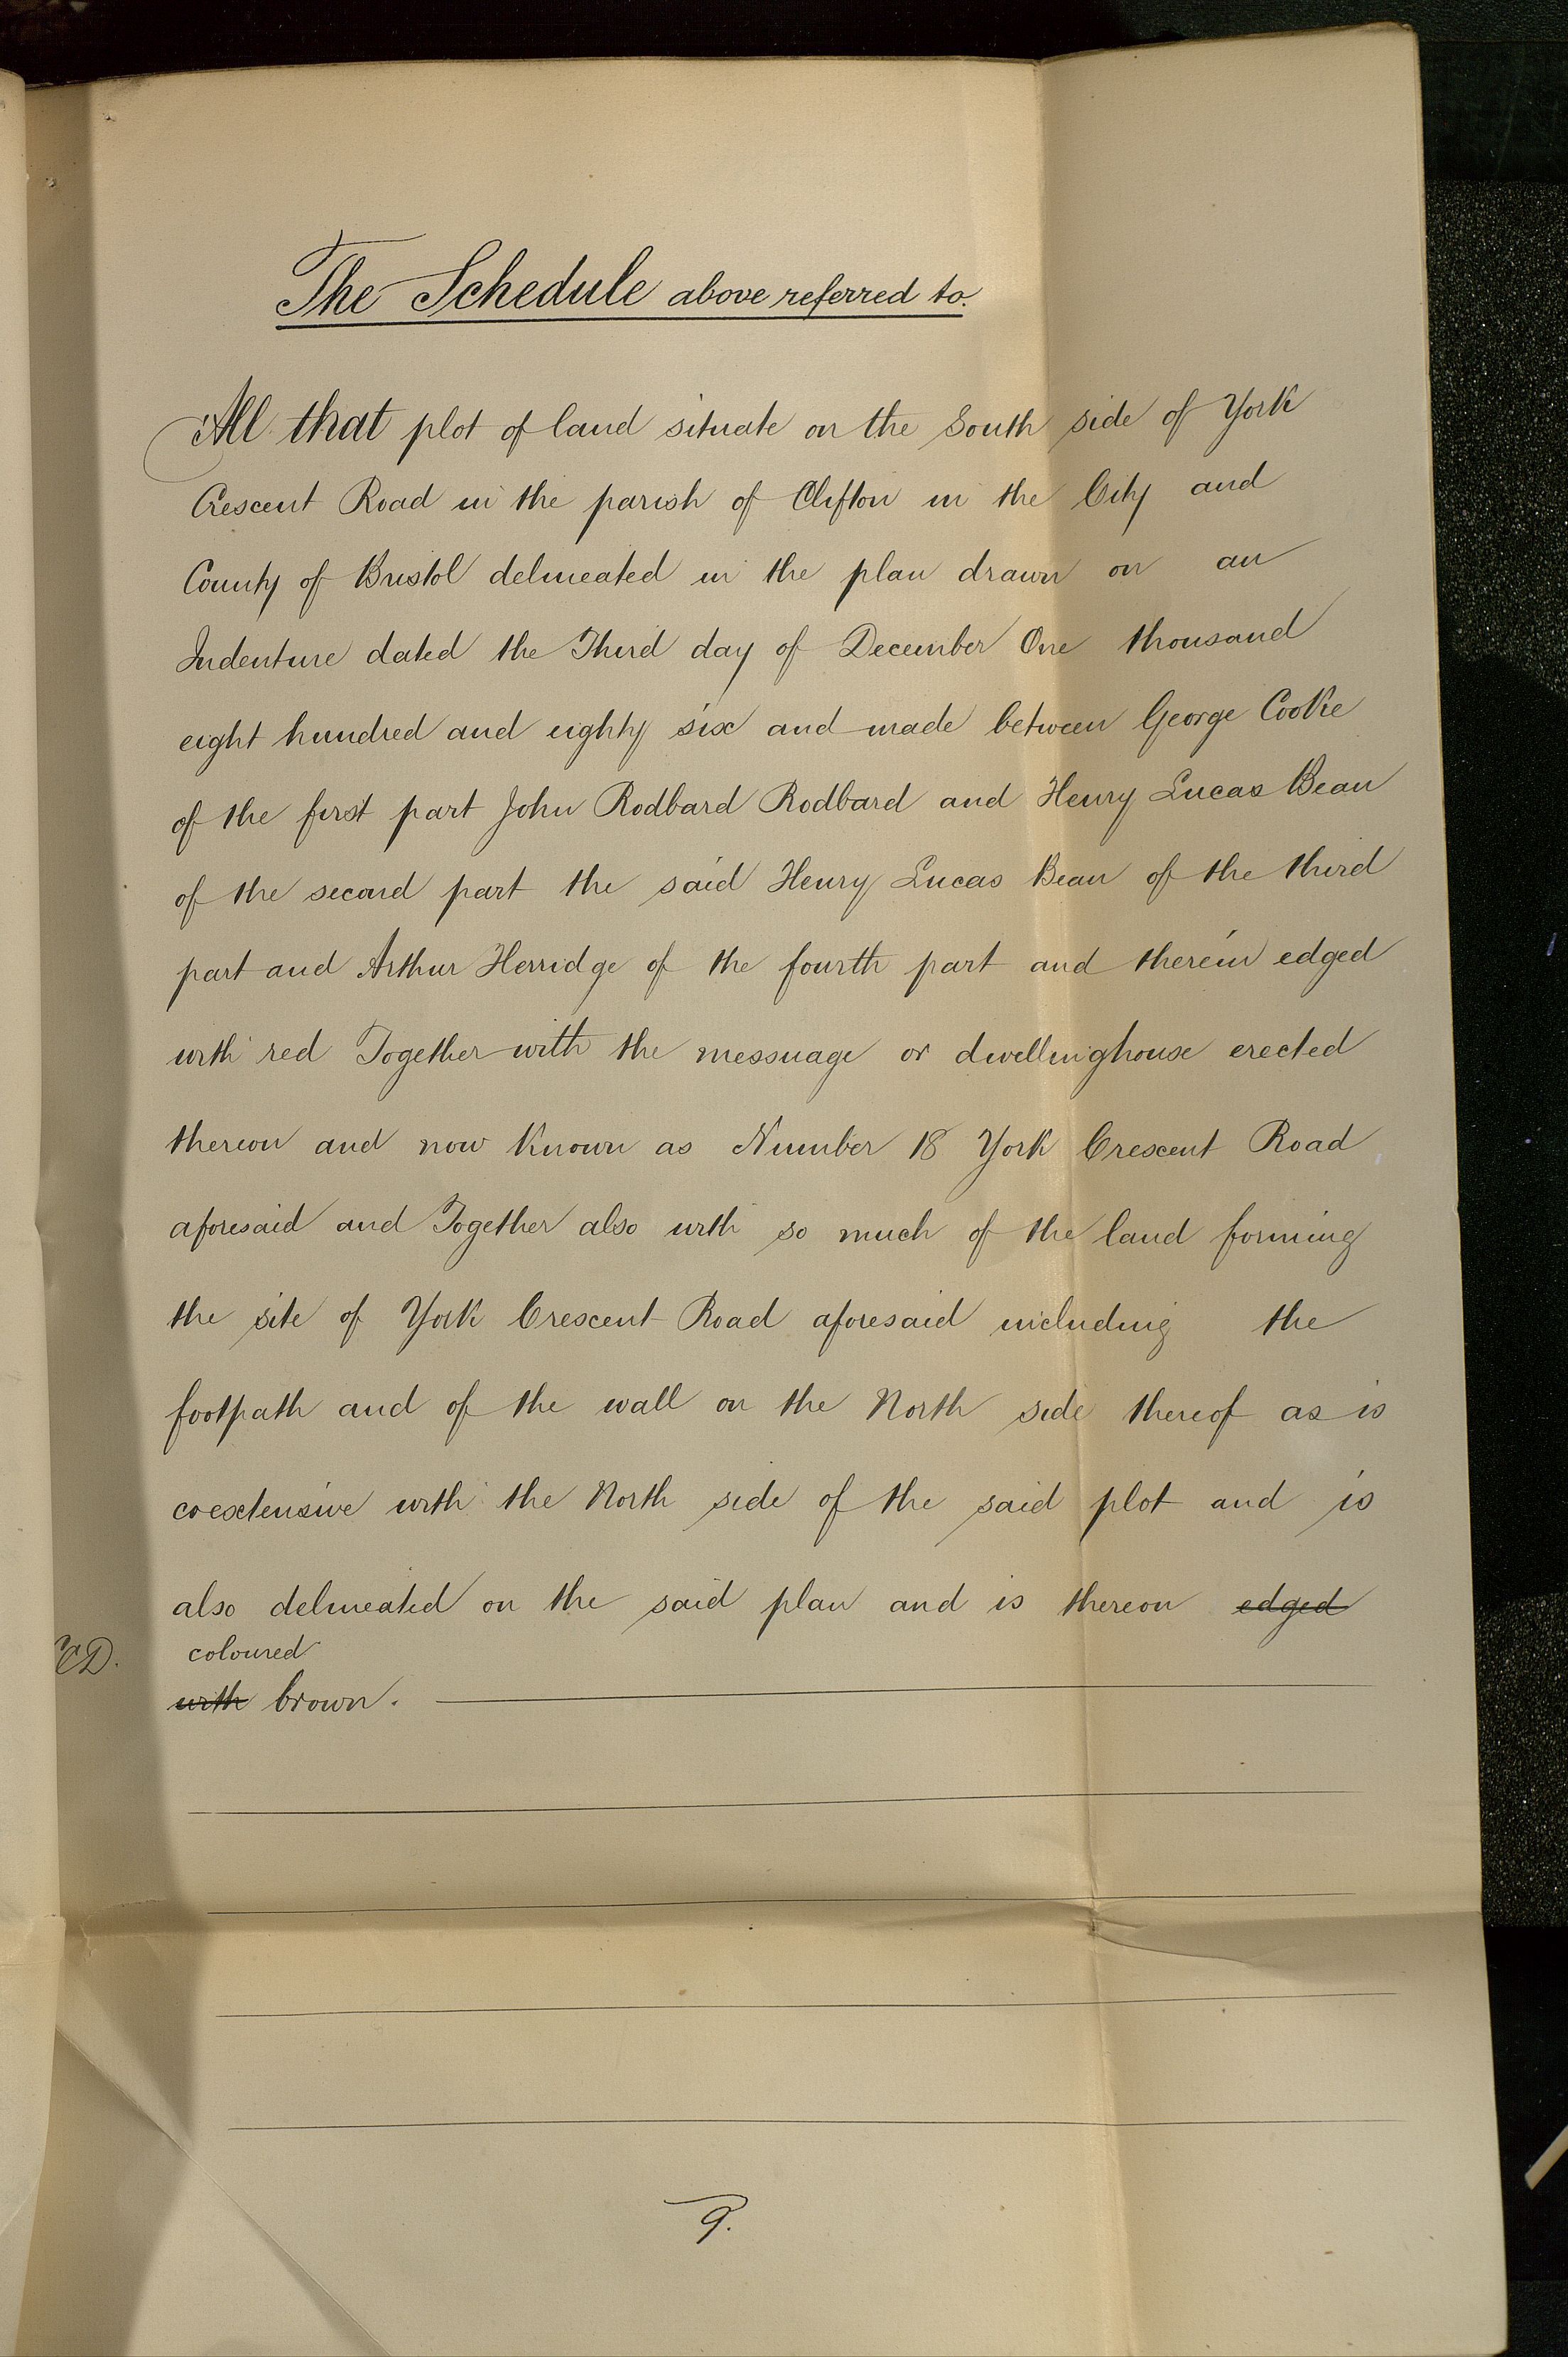 The Schedule above referred to.
All that plot of land situate on the South side of York
Crescent Road in the parish of Clifton in the City and
County of Bristol delineated in the plan drawn on an
Indenture dated the Third day of December One thousand
eight hundred and eighty six and made between George Cooke
of the first part John Rodbard Rodbard and Henry Lucas Bean
of the second part the said Henry Lucas Bean of the third
part and Arthur Herridge of the fourth part and therein edged
with red Together with the messuage or dwellinghouse erected
thereon and now known as Number 18 York Crescent Road
aforesaid and Together also with so much of the land forming
the site of York Crescent Road aforesaid including the
footpath and of the wall on the North side thereof as is
coextensive with the North side of the said plot and is
also delineated on the said plan and is thereon edged
coloured
with brown.
9.